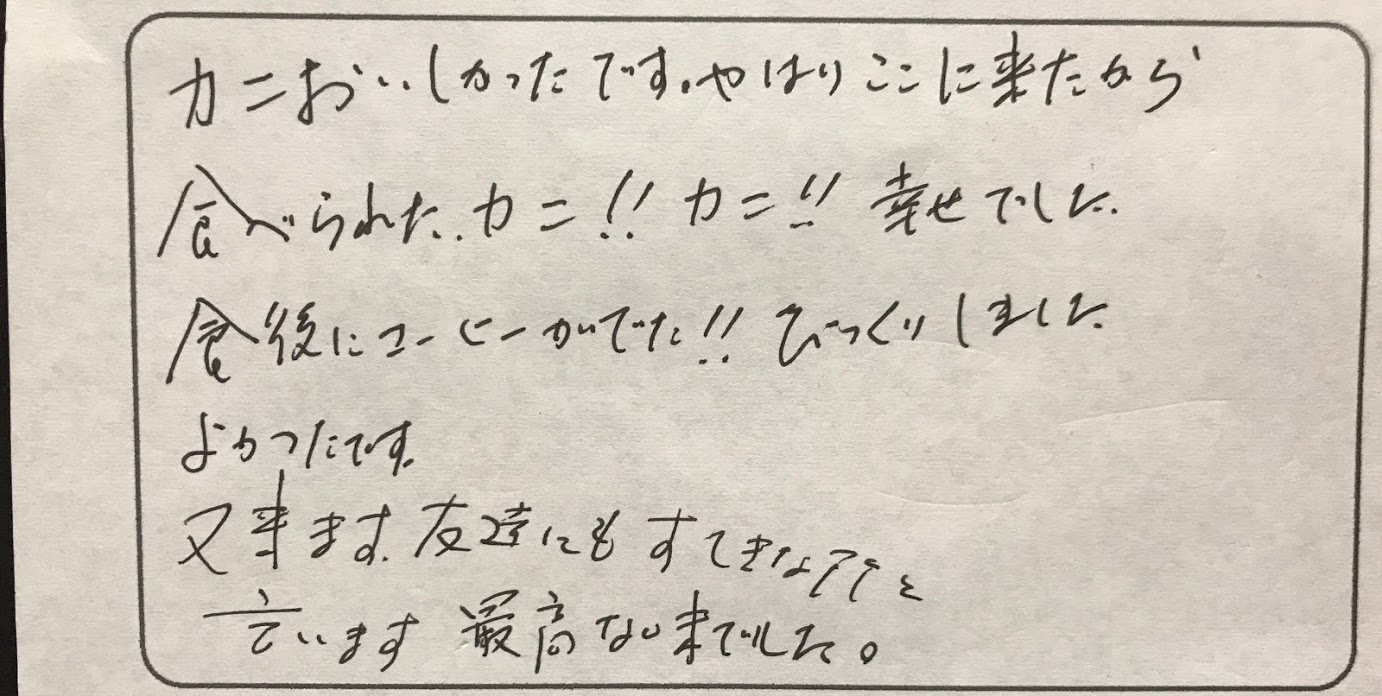 カニおいしかったです。やはりここに来たから
食べられた。カニ!!カニ!!幸せでした。
食後にコーヒーがでた!!びっくりしました
よかったです。
又来ます。友達にもすてきな と
言います 最高な 来でした。